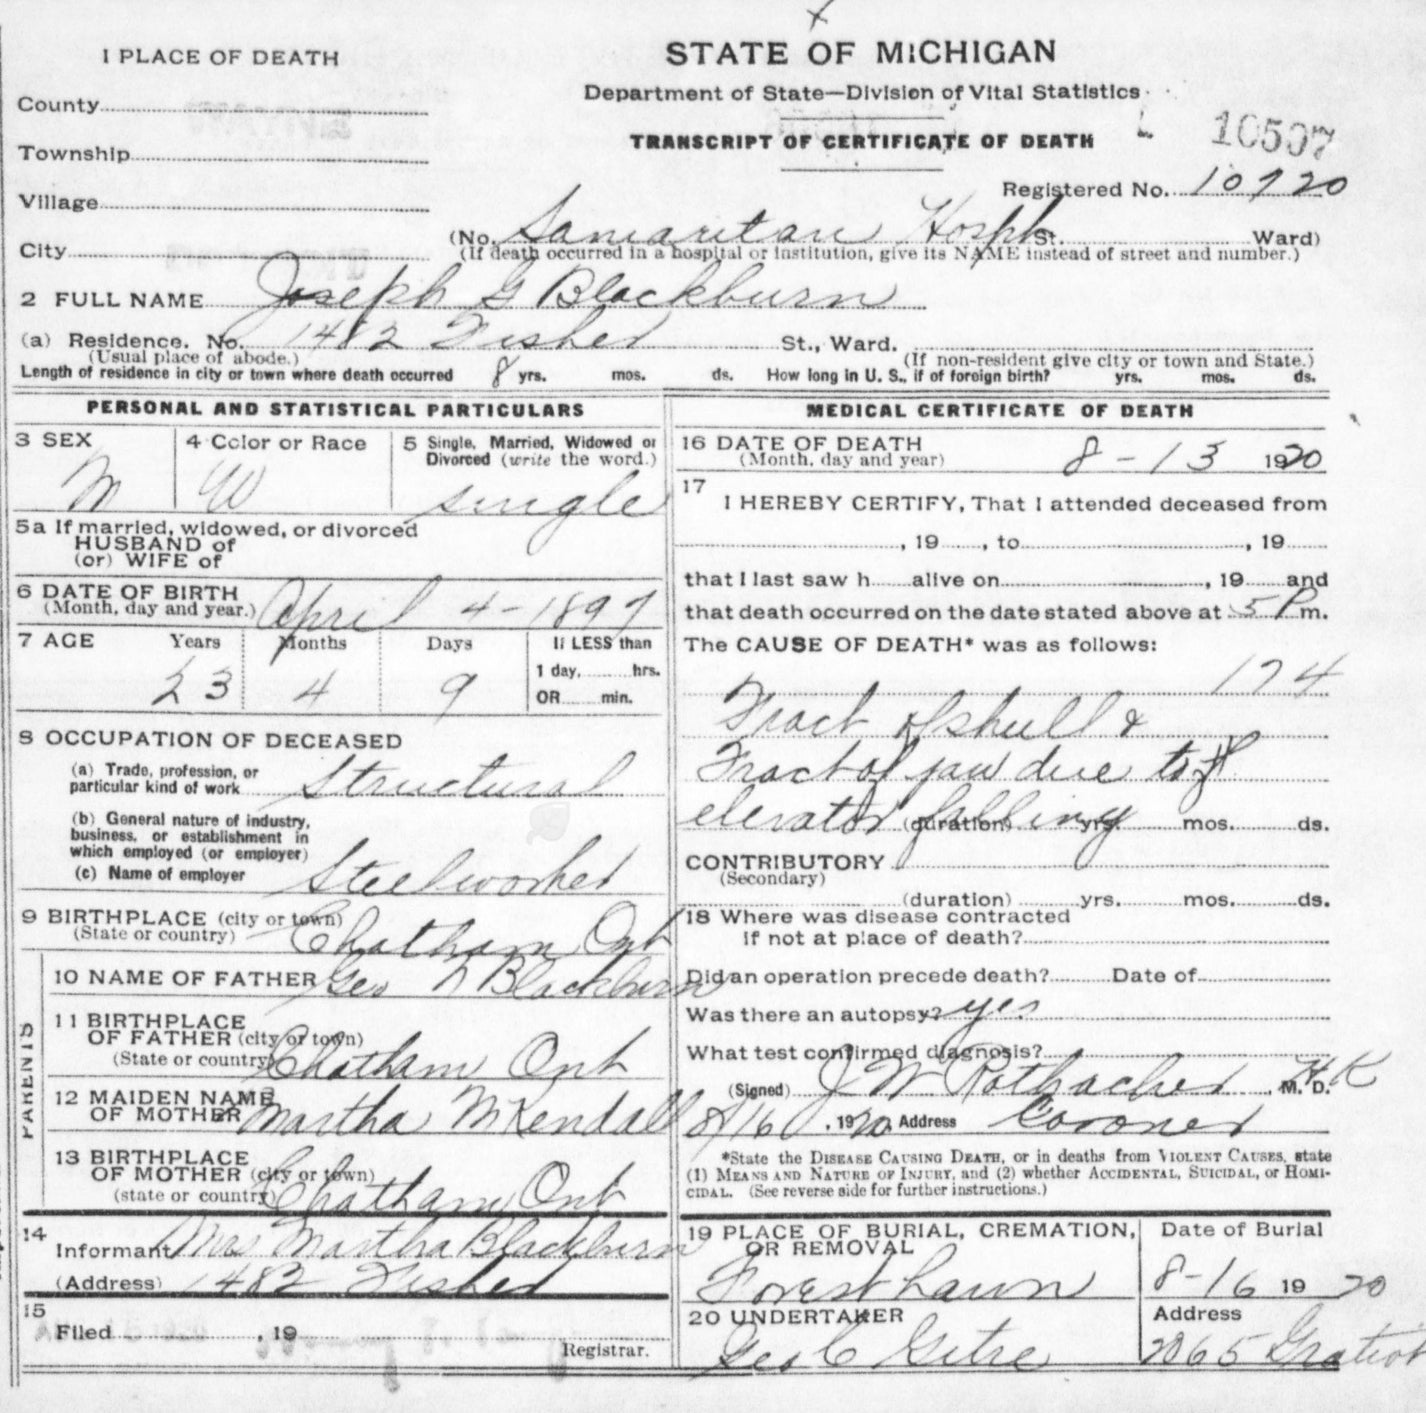 1 PLACE OF DEATH
STATE OF MICHIGAN
Department of State—Division of Vital Statistics
TRANSCRIPT OF CERTIFICATE OF DEATH
10507
County
Township
Registered No. 10720
Village
(No. Samaritan Hosph St. Ward)
City
(If death occurred in a hospital or institution, give its NAME instead of street and number.)
2 FULL NAME Joseph G Blackburn
(a) Residence. No. 1482 Fisher St., Ward.
(Usual place of abode.)
(If non-resident give city or town and State.)
Length of residence in city or town where death occurred 8 yrs. mos. ds. How long in U. S., if of foreign birth? yrs. mos. ds.
PERSONAL AND STATISTICAL PARTICULARS
3 SEX
M
4 Color or Race
W
5 Single, Married, Widowed or
Divorced (write the word.)
single
5a If married, widowed, or divorced
HUSBAND of
(or) WIFE of
6 DATE OF BIRTH
(Month, day and year.) April 4-1897
7 AGE Years Months Days If LESS than
1 day, hrs.
23 4 9 OR min.
8 OCCUPATION OF DECEASED
(a) Trade, profession, or
particular kind of work Structural
(b) General nature of industry,
business, or establishment in
which employed (or employer)
(c) Name of employer Steelworker
9 BIRTHPLACE (city or town)
(State or country) Chatham Ont
PARENTS
10 NAME OF FATHER Geo N Blackburn
11 BIRTHPLACE
OF FATHER (city or town)
(State or country) Chatham Ont
12 MAIDEN NAME
OF MOTHER Martha McKendall
13 BIRTHPLACE
OF MOTHER (city or town)
(state or country) Chatham Ont
14
Informant Mrs Martha Blackburn
(Address) 1482 Fisher
15
Filed , 19
Registrar.
MEDICAL CERTIFICATE OF DEATH
16 DATE OF DEATH
(Month, day and year) 8-13 1920
17
I HEREBY CERTIFY, That I attended deceased from
, 19 , to , 19
that I last saw h alive on , 19 and
that death occurred on the date stated above at 5 P m.
The CAUSE OF DEATH* was as follows:
174
Fract of skull &
Fract of jaw due to
elevator falling
(duration) yrs. mos. ds.
CONTRIBUTORY
(Secondary)
(duration) yrs. mos. ds.
18 Where was disease contracted
if not at place of death?
Did an operation precede death? Date of
Was there an autopsy? yes
What test confirmed diagnosis?
(Signed) J W Rothacher, M. D. HK
8/16, 1920 Address Coroner
*State the DISEASE CAUSING DEATH, or in deaths from VIOLENT CAUSES, state
(1) MEANS AND NATURE OF INJURY, and (2) whether ACCIDENTAL, SUICIDAL, or HOMI-
CIDAL. (See reverse side for further instructions.)
19 PLACE OF BURIAL, CREMATION,
OR REMOVAL
Forest Lawn
Date of Burial
8-16 1920
20 UNDERTAKER
Geo C Getre
Address
2065 Gratiot